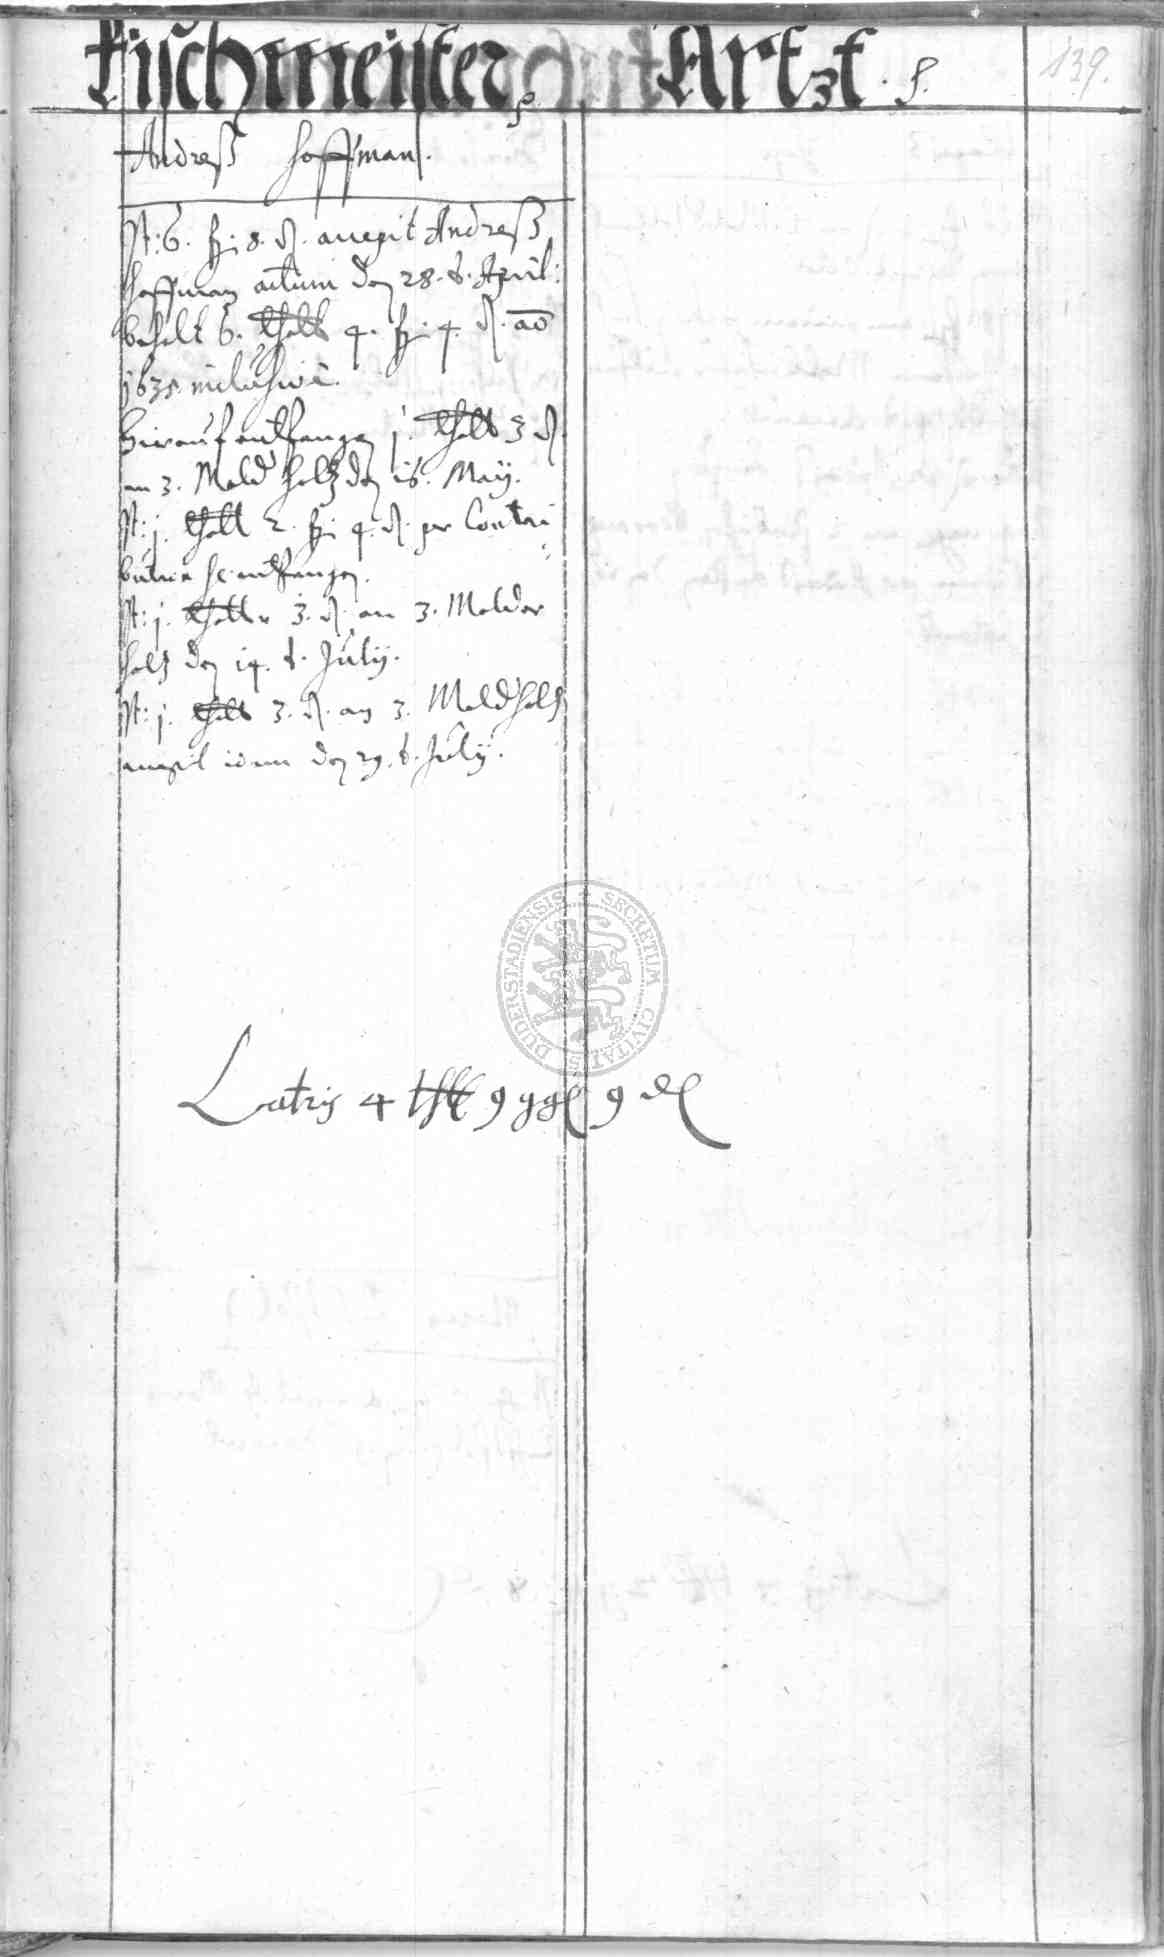 Fischmeister
Artzt.
139.
Andreß Hoffman.
It: 6. ß: 8. d. accepit Andreß
Hoffman actum den 28. t. April:
behelt 6. thall 4. ß: 4. d. ao
1635. inclusive.
Hierauf entfangen j. thall 3 d.
an 3. Mald holtz den 16. Maij.
It: j. thall 2. ß: 4. d. per Contri
bution entfangen.
It: j. thall 3. d. an 3. Malder
holtz den 14. t. Julij.
It: j. thall 3. d. an 3. Mald holtz
accepit idem den 29. t. Julij.
DUDERSTADIENSIS SECRETUM CIVITATIS
Latris 4 thll 9 ggl 9 d